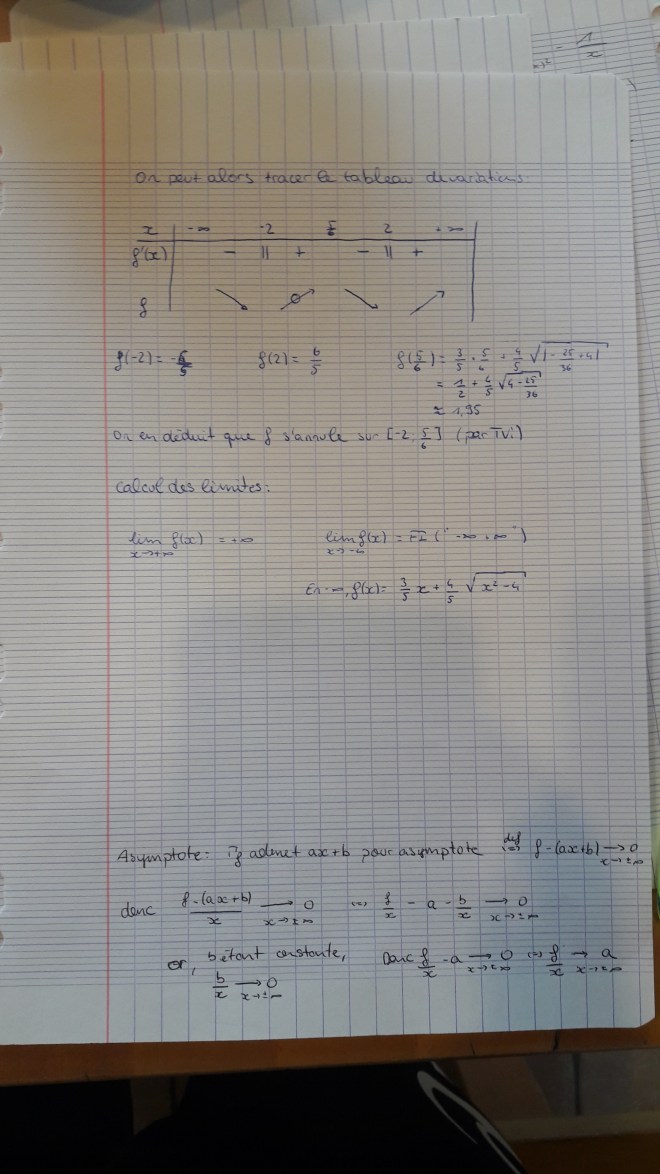 - 1/x
x)²
On peut alors tracer le tableau de variations:
x | -∞ -2 5/6 2 +∞
f'(x) | - || + - || +
f | ↘ ↗ ↘ ↗
f(-2) = -6/5 f(2) = 6/5 f(5/6) = 3/5 · 5/6 + 4/5 √|-25/36 + 4|
= 1/2 + 4/5 √(4 - 25/36)
≈ 1,95
On en déduit que f s'annule sur [-2, 5/6] (par TVI)
Calcul des limites:
lim f(x) = +∞ lim f(x) = FI ("-∞ + ∞")
x→+∞ x→-∞
En -∞, f(x) = 3/5 x + 4/5 √(x² - 4)
Asymptote: f admet ax+b pour asymptote déf <=> f - (ax+b) → 0
x→±∞
donc (f - (ax+b))/x → 0 <=> f/x - a - b/x → 0
x→±∞ x→±∞
or, b étant constante, Donc f/x - a → 0 <=> f/x → a
x→±∞ x→±∞
b/x → 0
x→±∞